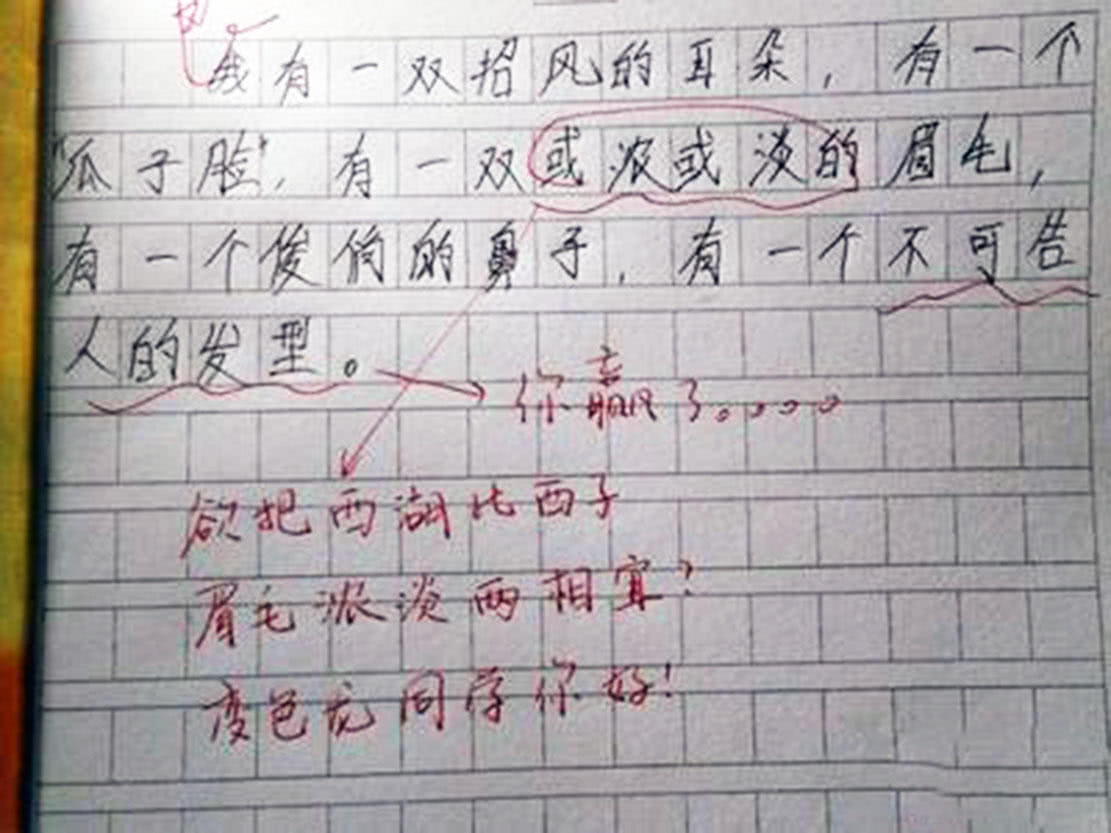 我有一双招风的耳朵，有一个
"瓜子脸"，有一双或浓或淡的眉毛，
有一个俊俏的鼻子，有一个不可告
人的发型。
你赢了。。。。
欲把西湖比西子
眉毛浓淡两相宜？
变色龙同学你好！